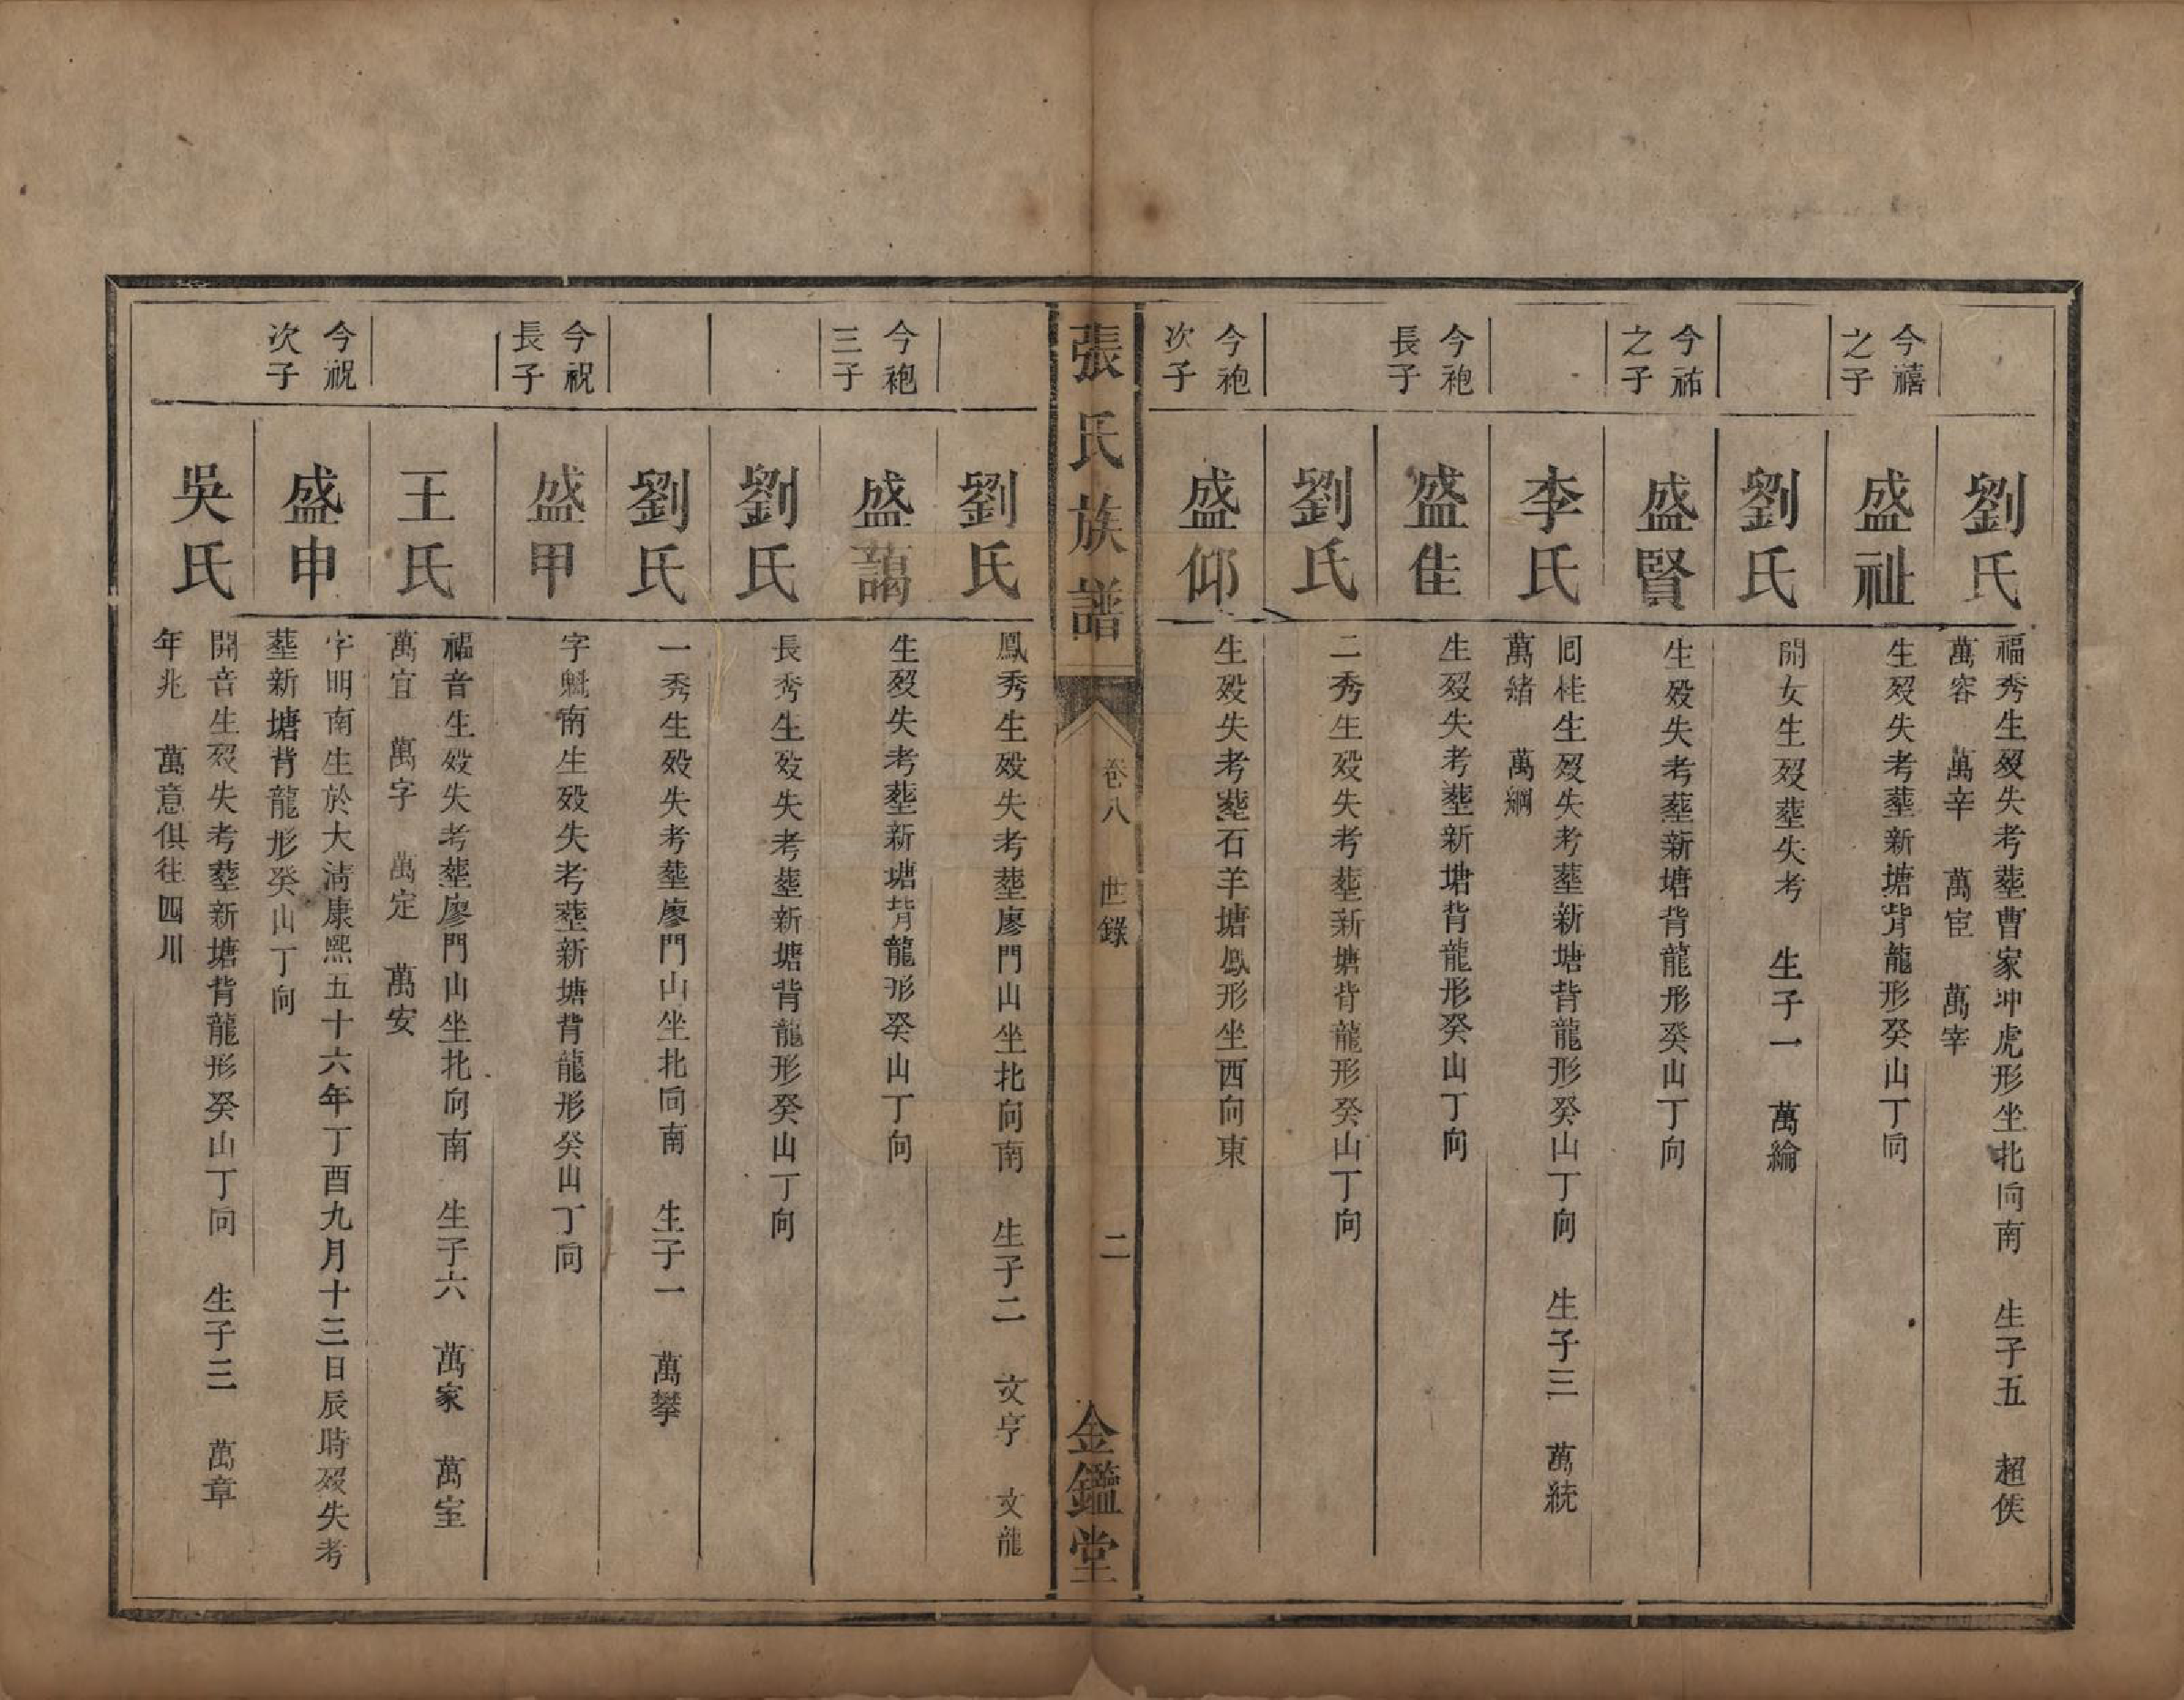 劉氏
福秀生歿失考塟曹家冲虎形坐北向南　生子五　超侯
萬容　萬辛　萬宦　萬宰
今禧
之子
盛祉
生歿失考塟新塘背龍形癸山丁向
劉氏
開女生歿塟失考　生子一　萬綸
今祐
之子
盛賢
生歿失考塟新塘背龍形癸山丁向
李氏
囘桂生歿失考塟新塘背龍形癸山丁向　生子三　萬統
萬緒　萬綱
今袍
長子
盛佳
生歿失考塟新塘背龍形癸山丁向
劉氏
二秀生歿失考塟新塘背龍形癸山丁向
今袍
次子
盛仰
生歿失考塟石羊塘鳳形坐西向東
張氏族譜
卷八　世錄
二
金鑑堂
劉氏
鳳秀生歿失考塟廖門山坐北向南　生子二　文亨　文龍
今袍
三子
盛藹
生歿失考塟新塘背龍形癸山丁向
劉氏
長秀生歿失考塟新塘背龍形癸山丁向
劉氏
一秀生歿失考塟廖門山坐北向南　生子一　萬攀
今祝
長子
盛甲
字魁南生歿失考塟新塘背龍形癸山丁向
王氏
福音生歿失考塟廖門山坐北向南　生子六　萬家　萬室
萬宜　萬字　萬定　萬安
今祝
次子
盛申
字明南生於大清康熙五十六年丁酉九月十三日辰時歿失考
塟新塘背龍形癸山丁向
吳氏
開音生歿失考塟新塘背龍形癸山丁向　生子三　萬章
年兆　萬意俱往四川